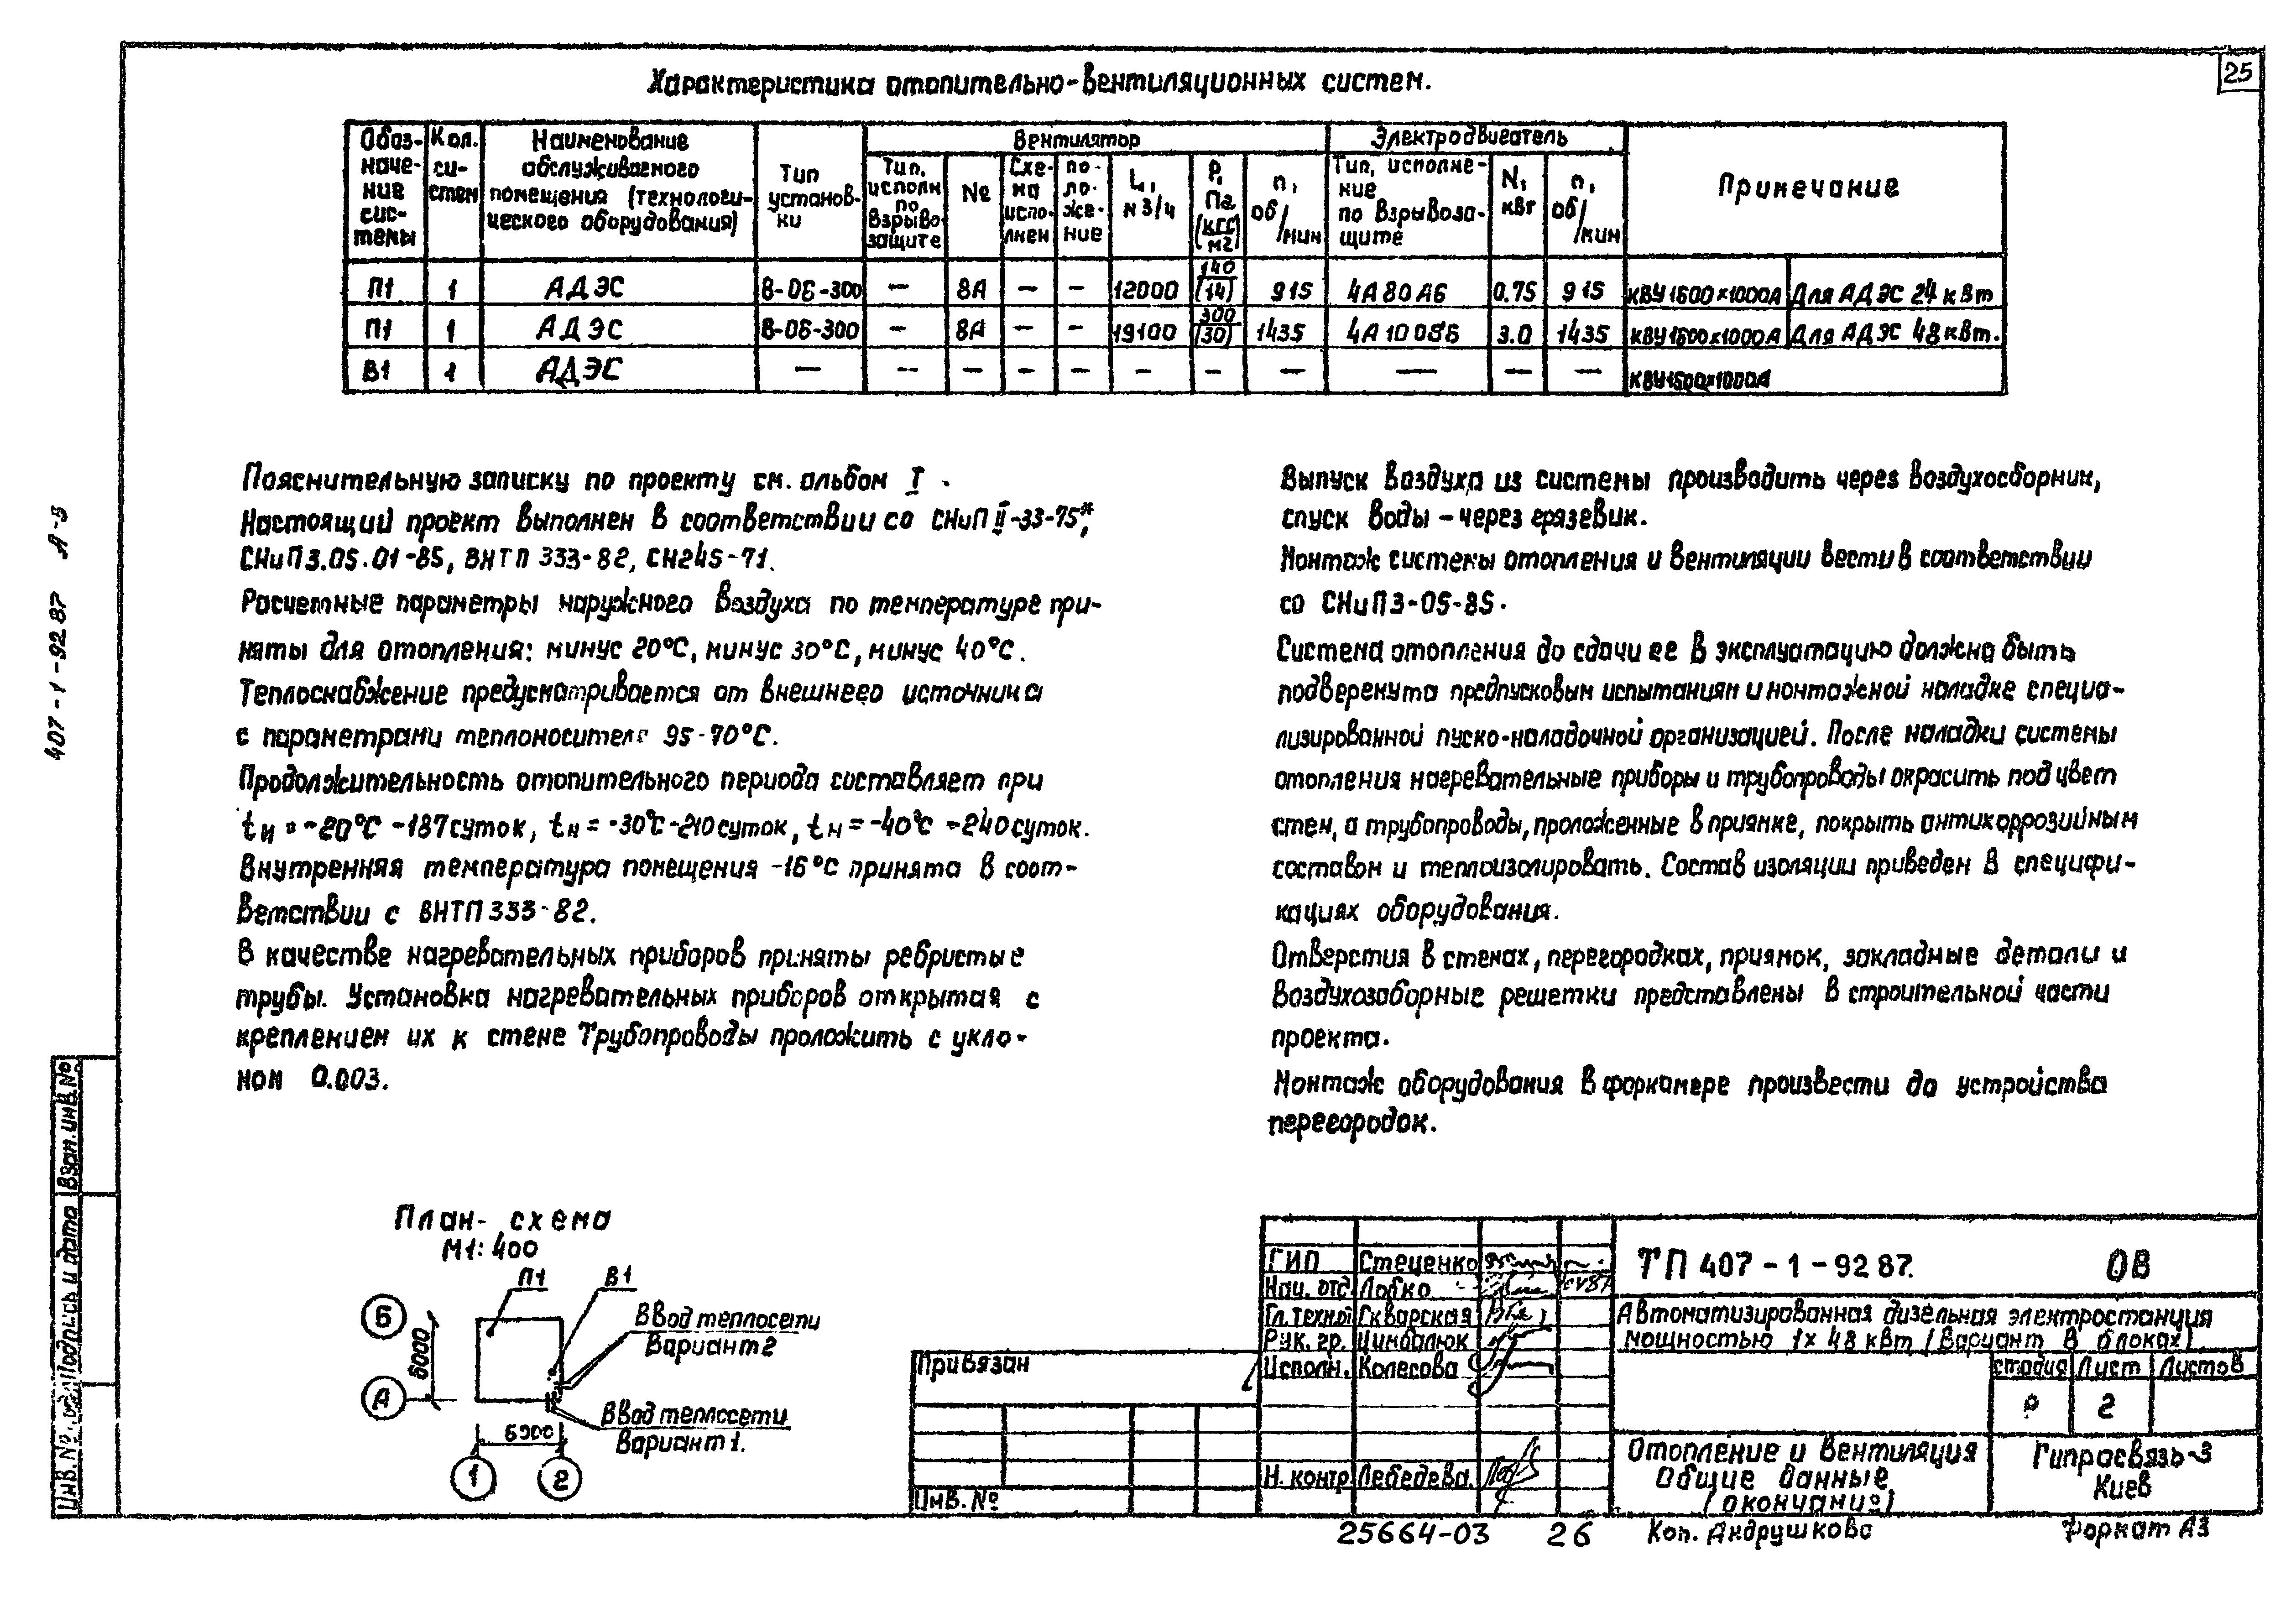 25
Характеристика отопительно-вентиляционных систем.
Обоз-начение системы | Кол. систем | Наименование обслуживаемого помещения (технологического оборудования) | Тип установки | Вентилятор | Электродвигатель | Примечание
Тип, исполн по взрывозащите | № | Схема исполнен | положение | L, м3/ч | P, Па (кгс/м2) | n, об/мин | Тип, исполнение по взрывозащите | N, квт | n, об/мин
П1 1 АДЭС В-06-300 — 8А — — 12000 140 (14) 915 4А80А6 0.75 915 КВУ1600х1000А Для АДЭС 24 кВт
П1 1 АДЭС В-06-300 — 8А — — 19100 300 (30) 1435 4А100S6 3.0 1435 КВУ1600х1000А Для АДЭС 48 кВт.
В1 1 АДЭС — — — — — — — — — — — КВУ1600х1000А
Пояснительную записку по проекту см. альбом I.
Настоящий проект выполнен в соответствии со СНиП II-33-75*,
СНиП 3.05.01-85, ВНТП 333-82, СН245-71.
Расчетные параметры наружного воздуха по температуре при-
няты для отопления: минус 20°С, минус 30°С, минус 40°С.
Теплоснабжение предусматривается от внешнего источника
с параметрами теплоносителя 95-70°С.
Продолжительность отопительного периода составляет при
tн = -20°С -187суток, tн = -30°С-210суток, tн = -40°С -240суток.
Внутренняя температура помещения -16°С принята в соот-
ветствии с ВНТП 333-82.
В качестве нагревательных приборов приняты ребристые
трубы. Установка нагревательных приборов открытая с
креплением их к стене Трубопроводы проложить с укло-
ном 0.003.
Выпуск воздуха из системы производить через воздухосборник,
спуск воды - через грязевик.
Монтаж системы отопления и вентиляции вести в соответствии
со СНиП 3-05-85.
Система отопления до сдачи ее в эксплуатацию должна быть
подвергнута предпусковым испытаниям и монтажной наладке специа-
лизированной пуско-наладочной организацией. После наладки системы
отопления нагревательные приборы и трубопроводы окрасить под цвет
стен, а трубопроводы, проложенные в приямке, покрыть антикоррозийным
составом и теплоизолировать. Состав изоляции приведен в специфи-
кациях оборудования.
Отверстия в стенах, перегородках, приямок, закладные детали и
воздухозаборные решетки представлены в строительной части
проекта.
Монтаж оборудования в форкамере произвести до устройства
перегородок.
План- схема
М1:400
П1 В1
Б
6000
А
Ввод теплосети
Вариант 2
Ввод теплосети
Вариант 1.
6000
1 2
407-1-92 87 А-3
Взам.инв.№
Подпись и дата
Инв.№ подл
Привязан
Инв. №
ГИП Стеценко
Нач. отд. Лобко
Гл. технол Скварская
Рук. гр. Цимбалюк
Исполн. Колесова
Н. контр. Лебедева.
ТП 407-1-92 87. ОВ
Автоматизированная дизельная электростанция
мощностью 1х48 квт (Вариант в блоках)
стадия Лист Листов
Р 2
Отопление и вентиляция
Общие данные
(окончание)
Гипросвязь-3
Киев
25664-03 26 Коп. Андрушкова Формат А3